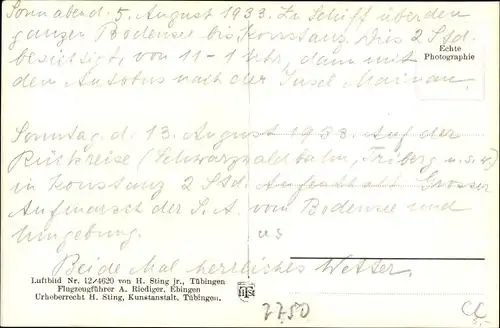 Sonnabend. 5. August 1933. Zu Schiff über den
ganzen Bodensee bis Konstanz. Dies 2 Std.
besichtigt, von 11-1 Uhr, dann mit
dem Autobus nach der Insel Mainau.
Echte
Photographie
Sonntag. d. 13. August 1933. Auf der
Rückreise (Schwarzwaldbahn, Triberg u.s.w.)
in Konstanz 2 Std. Aufenthalt. Grosser
Aufmarsch der S.A. vom Bodensee und
Umgebung.
Beide Mal herrliches Wetter.
Luftbild Nr. 12/4620 von H. Sting jr., Tübingen
Flugzeugführer A. Riediger, Ebingen
Urheberrecht H. Sting, Kunstanstalt, Tübingen.
7750